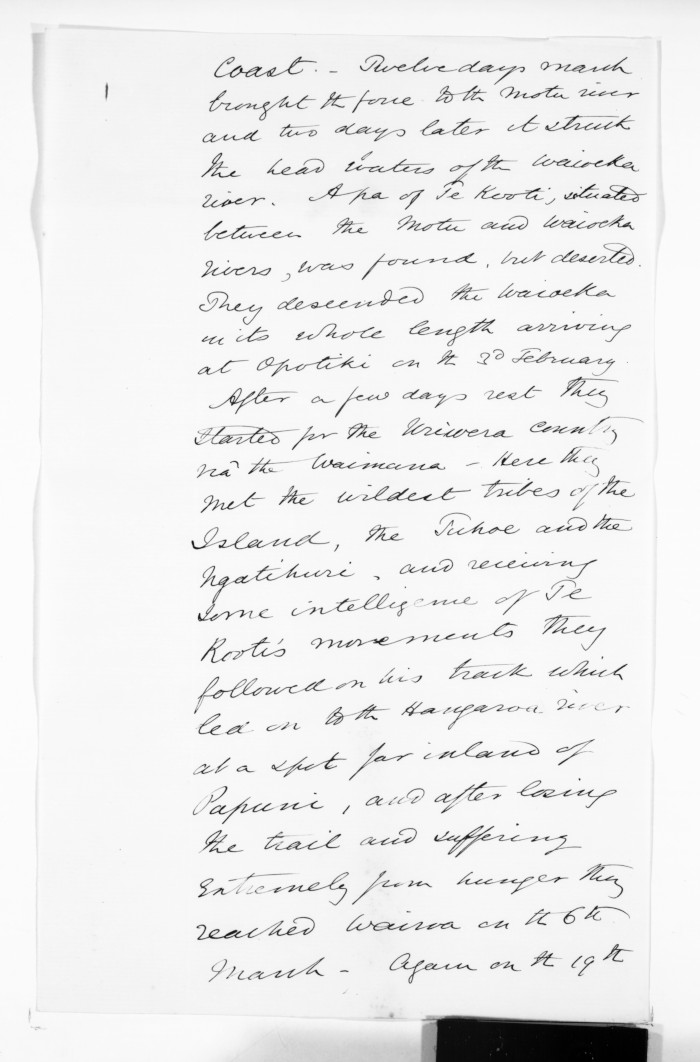 Coast. - Twelve days march
brought th force to th Motu river
and two days later it struck
the head waters of th Waioeka
river. A pa of Te Kooti, situated
between the Motu and Waioeka
rivers, was found, but deserted.
They descended the Waioeka
in its whole length arriving
at Opotiki on th 3d February.
After a few days rest they
started for the Uriwera country
via the Waimana - Here they
met the wildest tribes of the
Island, the Tuhoe and the
Ngatihuri, and receiving
some intelligence of Te
Kooti's movements they
followed on his track which
led on to th Hangaroa river
at a spot far inland of
Papuni, and after losing
the trail and suffering
extremely from hunger they
reached Wairoa on th 6th
March - Again on th 19th